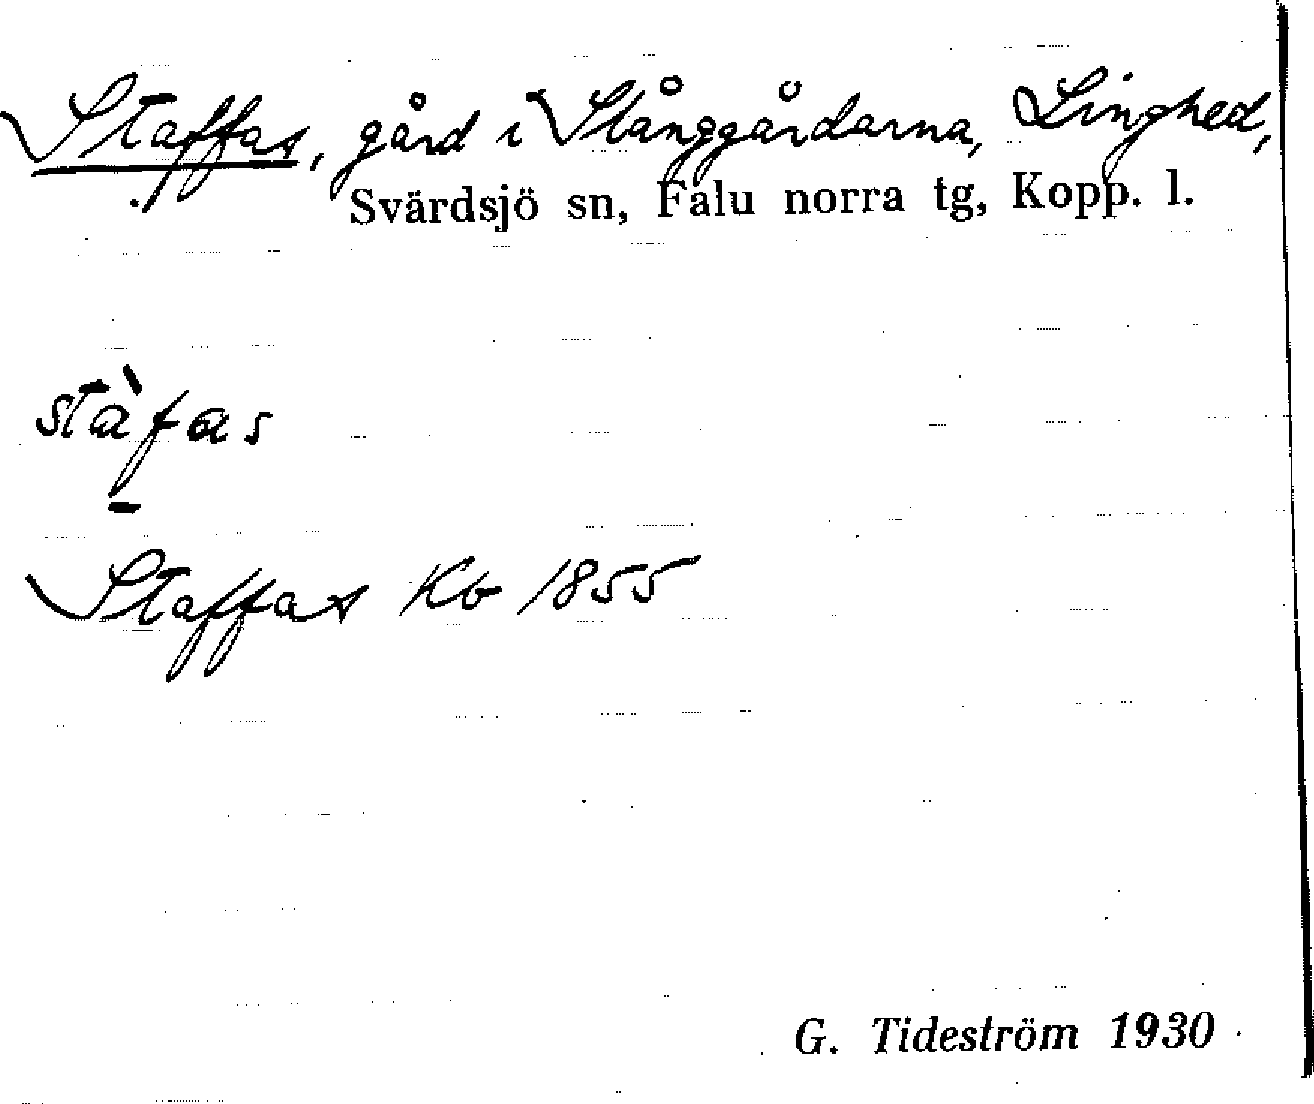 Staffas, gård i Stånggårdarna, Linghed,
Svärdsjö sn, Falu norra tg, Kopp. l.
stàfas
Staffas Kb 1855
G. Tideström 1930